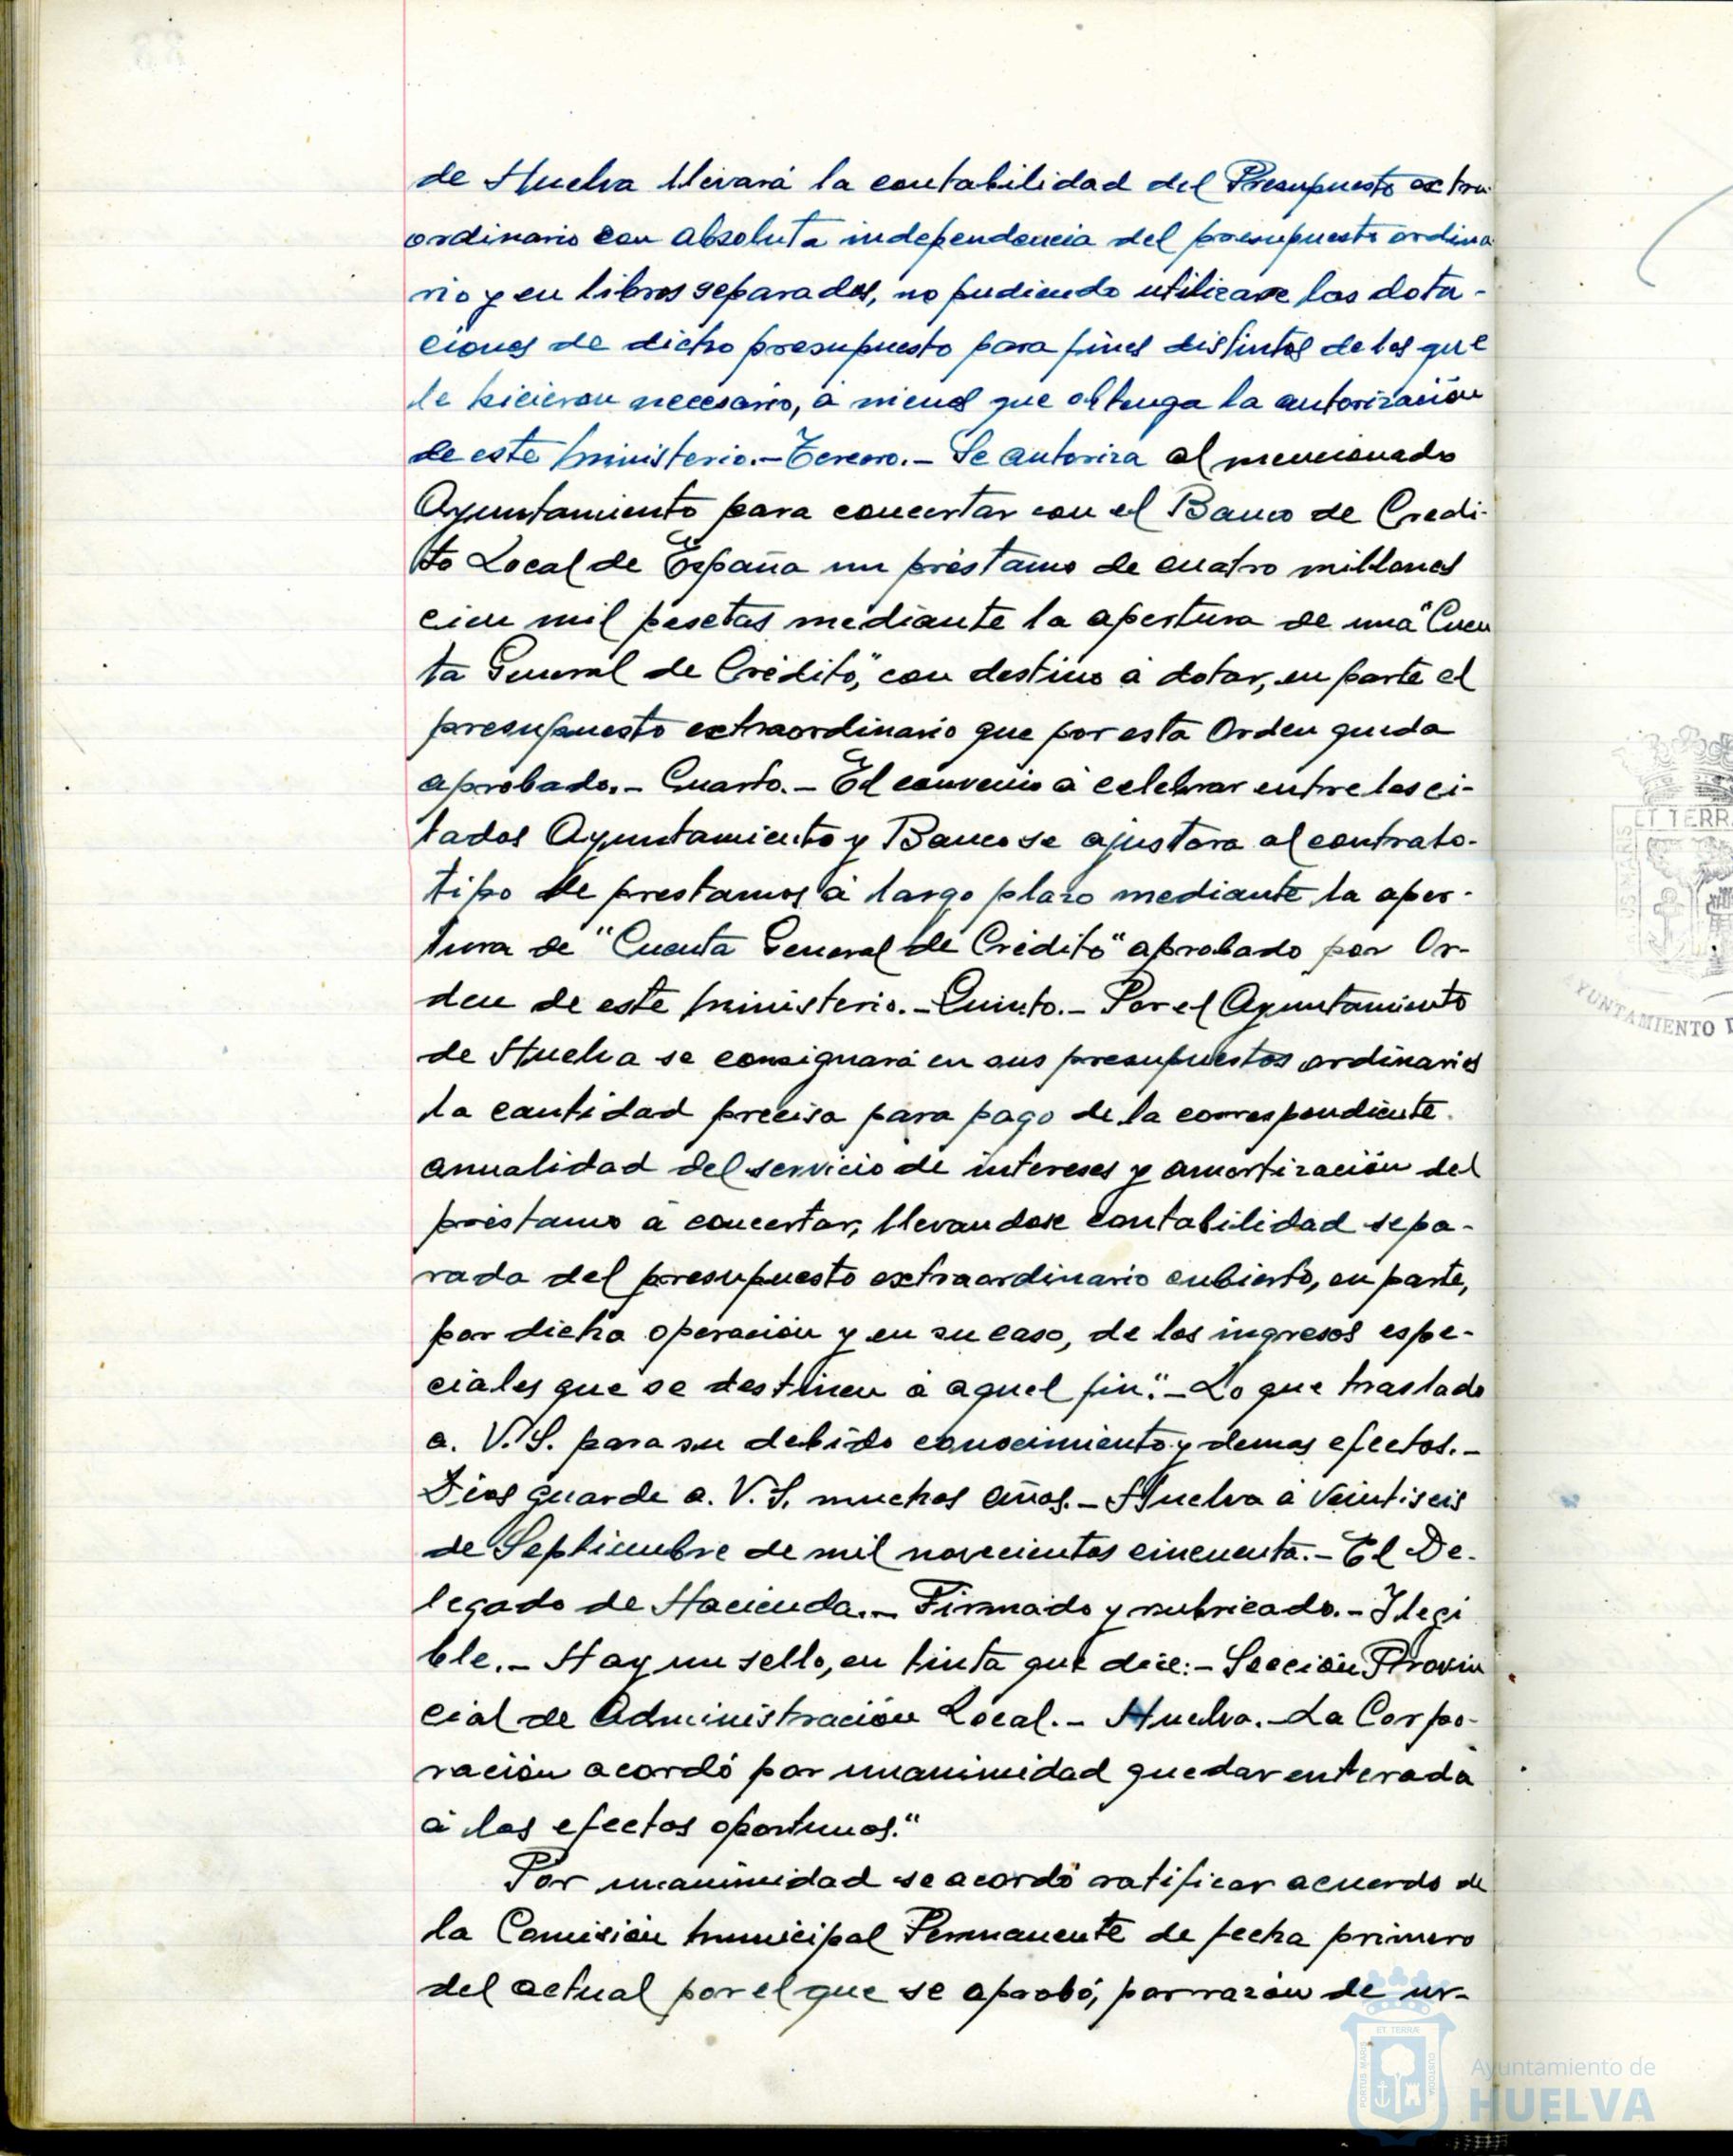 de Huelva llevará la contabilidad del Presupuesto extra
ordinario con absoluta independencia del presupuesto ordina
rio y en libros separados, no pudiendo utilizarse las dota-
ciones de dicho presupuesto para fines distintos de los que
le hicieron necesario, á menos que obtenga la autorización
de este Ministerio.- Tercero.- Se autoriza al mencionado
Ayuntamiento para concertar con el Banco de Credi-
to Local de España un préstamo de cuatro millones
cien mil pesetas mediante la apertura de una "Cuen
ta General de Crédito", con destino á dotar, en parte el
presupuesto extraordinario que por esta Orden queda
aprobado.- Cuarto.- El convenio á celebrar entre los ci-
tados Ayuntamiento y Banco se ajustara al contrato-
tipo de prestamos á largo plazo mediante la aper-
tura de "Cuenta General de Crédito" aprobado por Or-
den de este Ministerio.- Quinto.- Por el Ayuntamiento
de Huelva se consignará en sus presupuestos ordinarios
la cantidad precisa para pago de la correspondiente
anualidad del servicio de intereses y amortización del
préstamo á concertar, llevandose contabilidad sepa-
rada del presupuesto extraordinario cubierto, en parte,
por dicha operación y en su caso, de los ingresos espe-
ciales que se destinen á aquel fin".- Lo que traslado
a. V.S. para su debido conocimiento y demas efectos.-
Dios guarde a. V.S. muchos años.- Huelva á veintiseis
de Septiembre de mil novecientos cincuenta.- El De-
legado de Hacienda.- Firmado y rubricado.- Ilegi
ble.- Hay un sello, en tinta que dice:- Sección Provin
cial de Administración Local.- Huelva.- La Corpo-
ración acordó por unanimidad quedar enterada
á los efectos oportunos."
Por unanimidad se acordó ratificar acuerdo de
la Comisión Municipal Permanente de fecha primero
del actual por el que se aprobó, por razón de ur-
ET TERRA
AYUNTAMIENTO D
PORTUS MARIS
ET TERRÆ
CUSTODIA
Ayuntamiento de
HUELVA